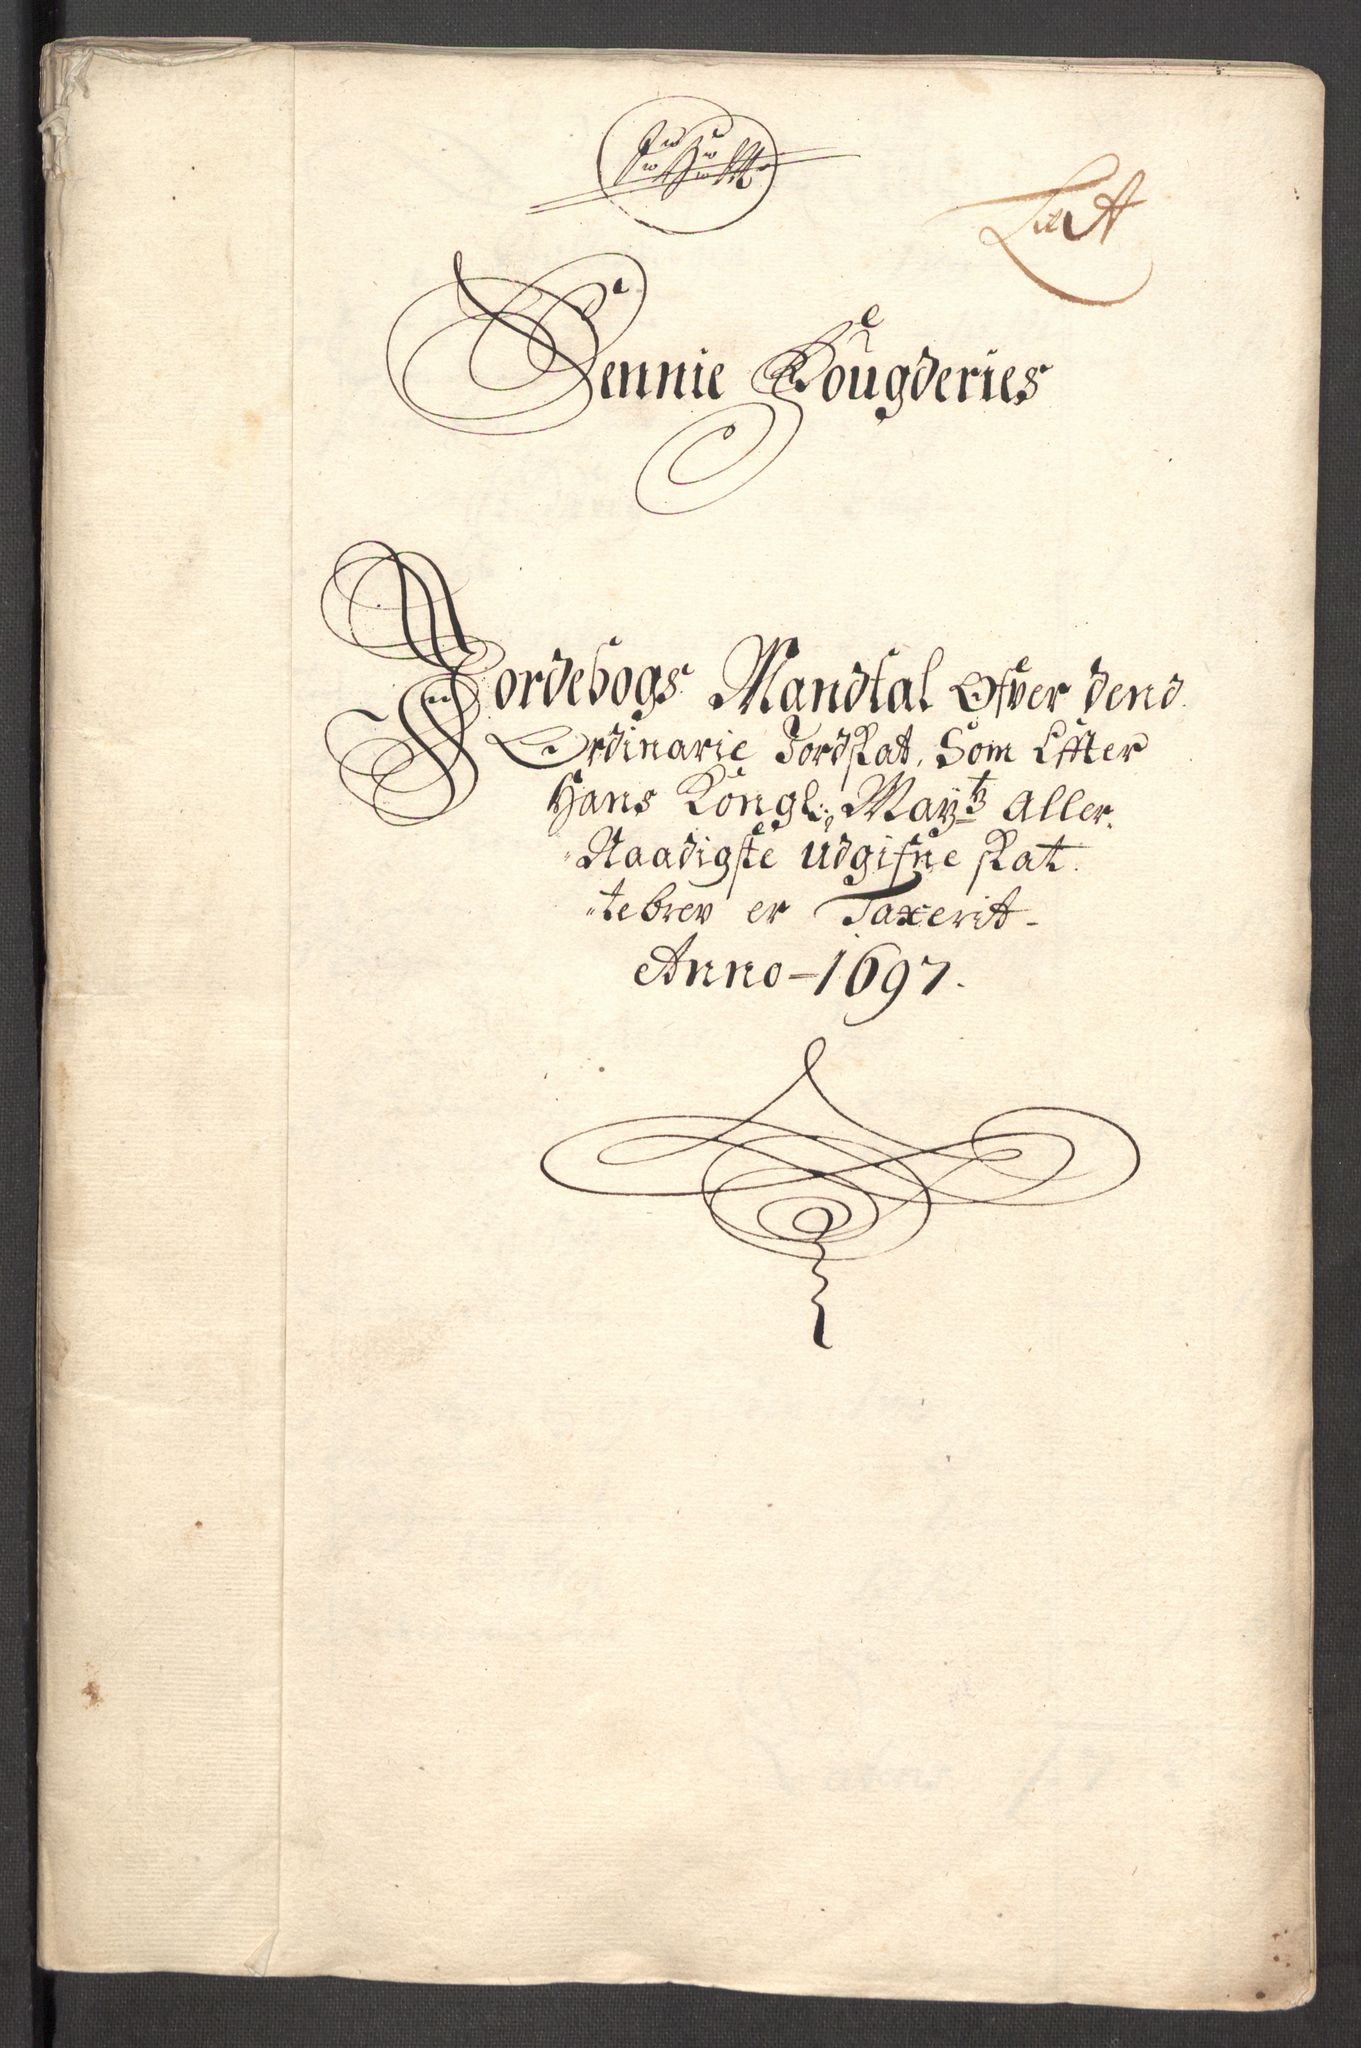 Lit A
Sennie Fougderies
Jordebogs Mandtal Ofver dend
Ordinarie Jordskat, Som Effter
Hans Kongl: Mayts Aller-
Naadigste udgifne skat
-tebrev er Taxerit-
Anno-1697.